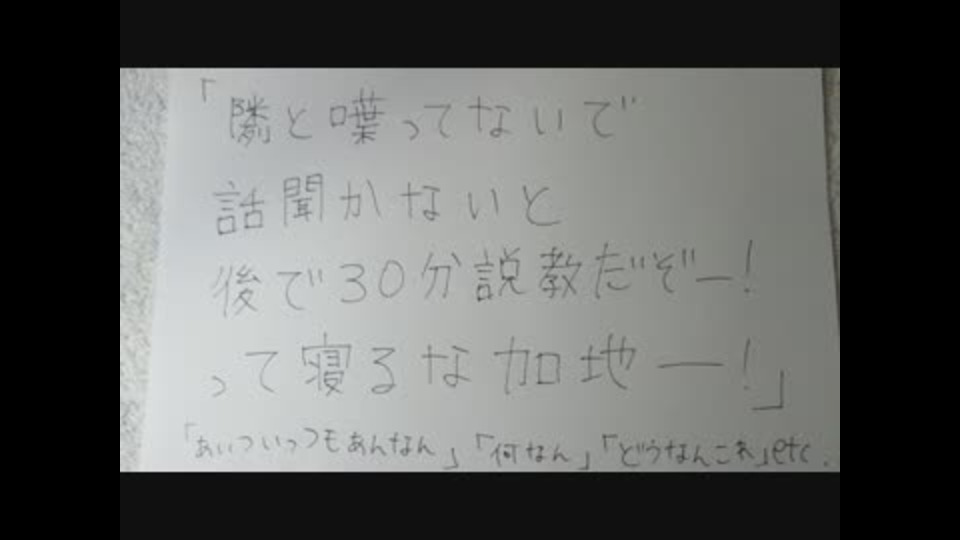 「隣と喋ってないで
話聞かないと
後で30分説教だぞー!
って寝るな加地ー!」
「あいついっつもあんなん」「何なん」「どうなんこれ」etc.